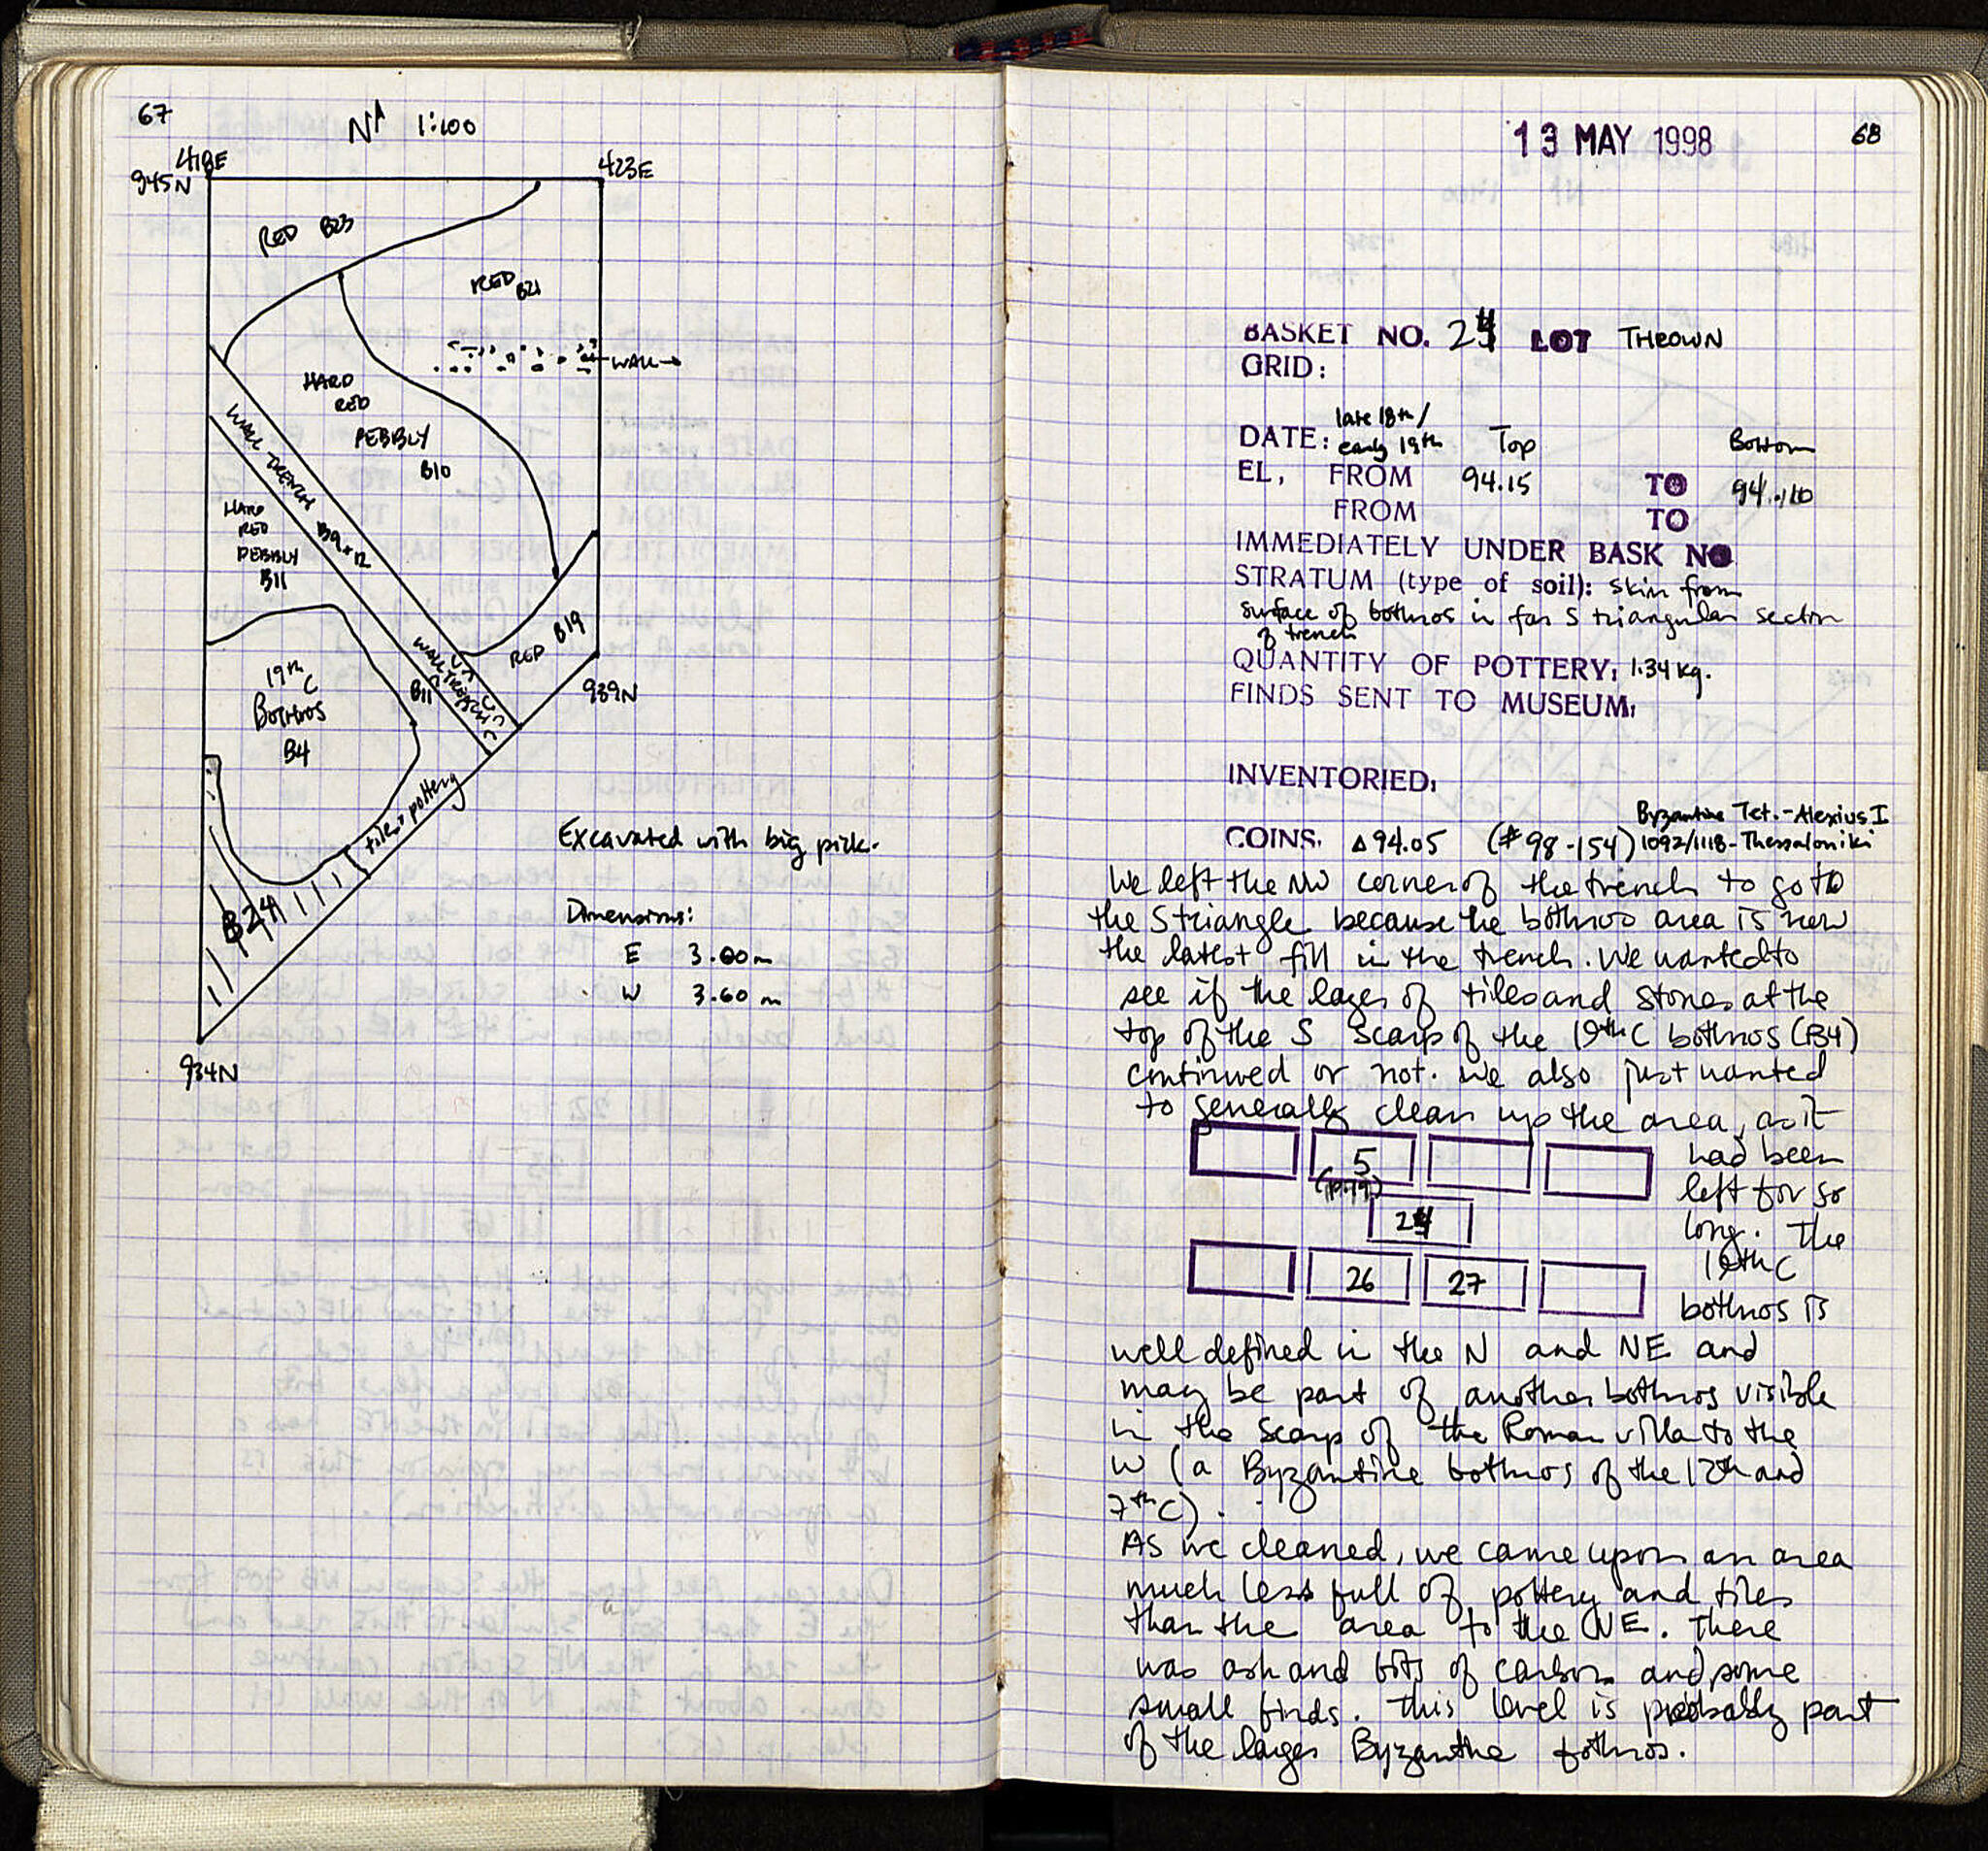 67
N 1:100
418E
945N
423E
RED B23
RED B21
WALL
HARD
RED
PEBBLY
B10
WALL TRENCH B9+12
HARD
RED
PEBBLY
B11
RED B19
WALL TRENCH
B11
939N
19th
C
Bothros
B4
tile + pottery
B24
Excavated with big pick.
Dimensions:
E 3.60m
W 3.60 m
934N
13 MAY 1998
68
BASKET NO. 24 LOT THROWN
GRID:
late 18th/
DATE: early 19th Top Bottom
EL, FROM 94.15 TO 94.10
FROM TO
IMMEDIATELY UNDER BASK NO
STRATUM (type of soil): skin from
surface of bothros in far S triangular section
of trench
QUANTITY OF POTTERY: 1.34 kg.
FINDS SENT TO MUSEUM:
INVENTORIED:
Byzantine Tet.-Alexius I
COINS. Δ94.05 (#98-154) 1092/1118-Thessaloniki
We left the NW corner of the trench to go to
the S triangle because the bothros area is now
the latest fill in the trench. We wanted to
see if the layer of tiles and stones at the
top of the S scarp of the 19th C bothros (B4)
continued or not. We also just wanted
to generally clean up the area, as it
had been
left for so
long. The
19th C
bothros is
5
(p.19)
24
26 27
well defined in the N and NE and
may be part of another bothros visible
in the scarp of the Roman villa to the
W (a Byzantine bothros of the 12th and
7th C).
As we cleaned, we came upon an area
much less full of pottery and tiles
than the area to the NE. There
was ash and bits of carbon and some
small finds. This level is probably part
of the larger Byzantine bothros.